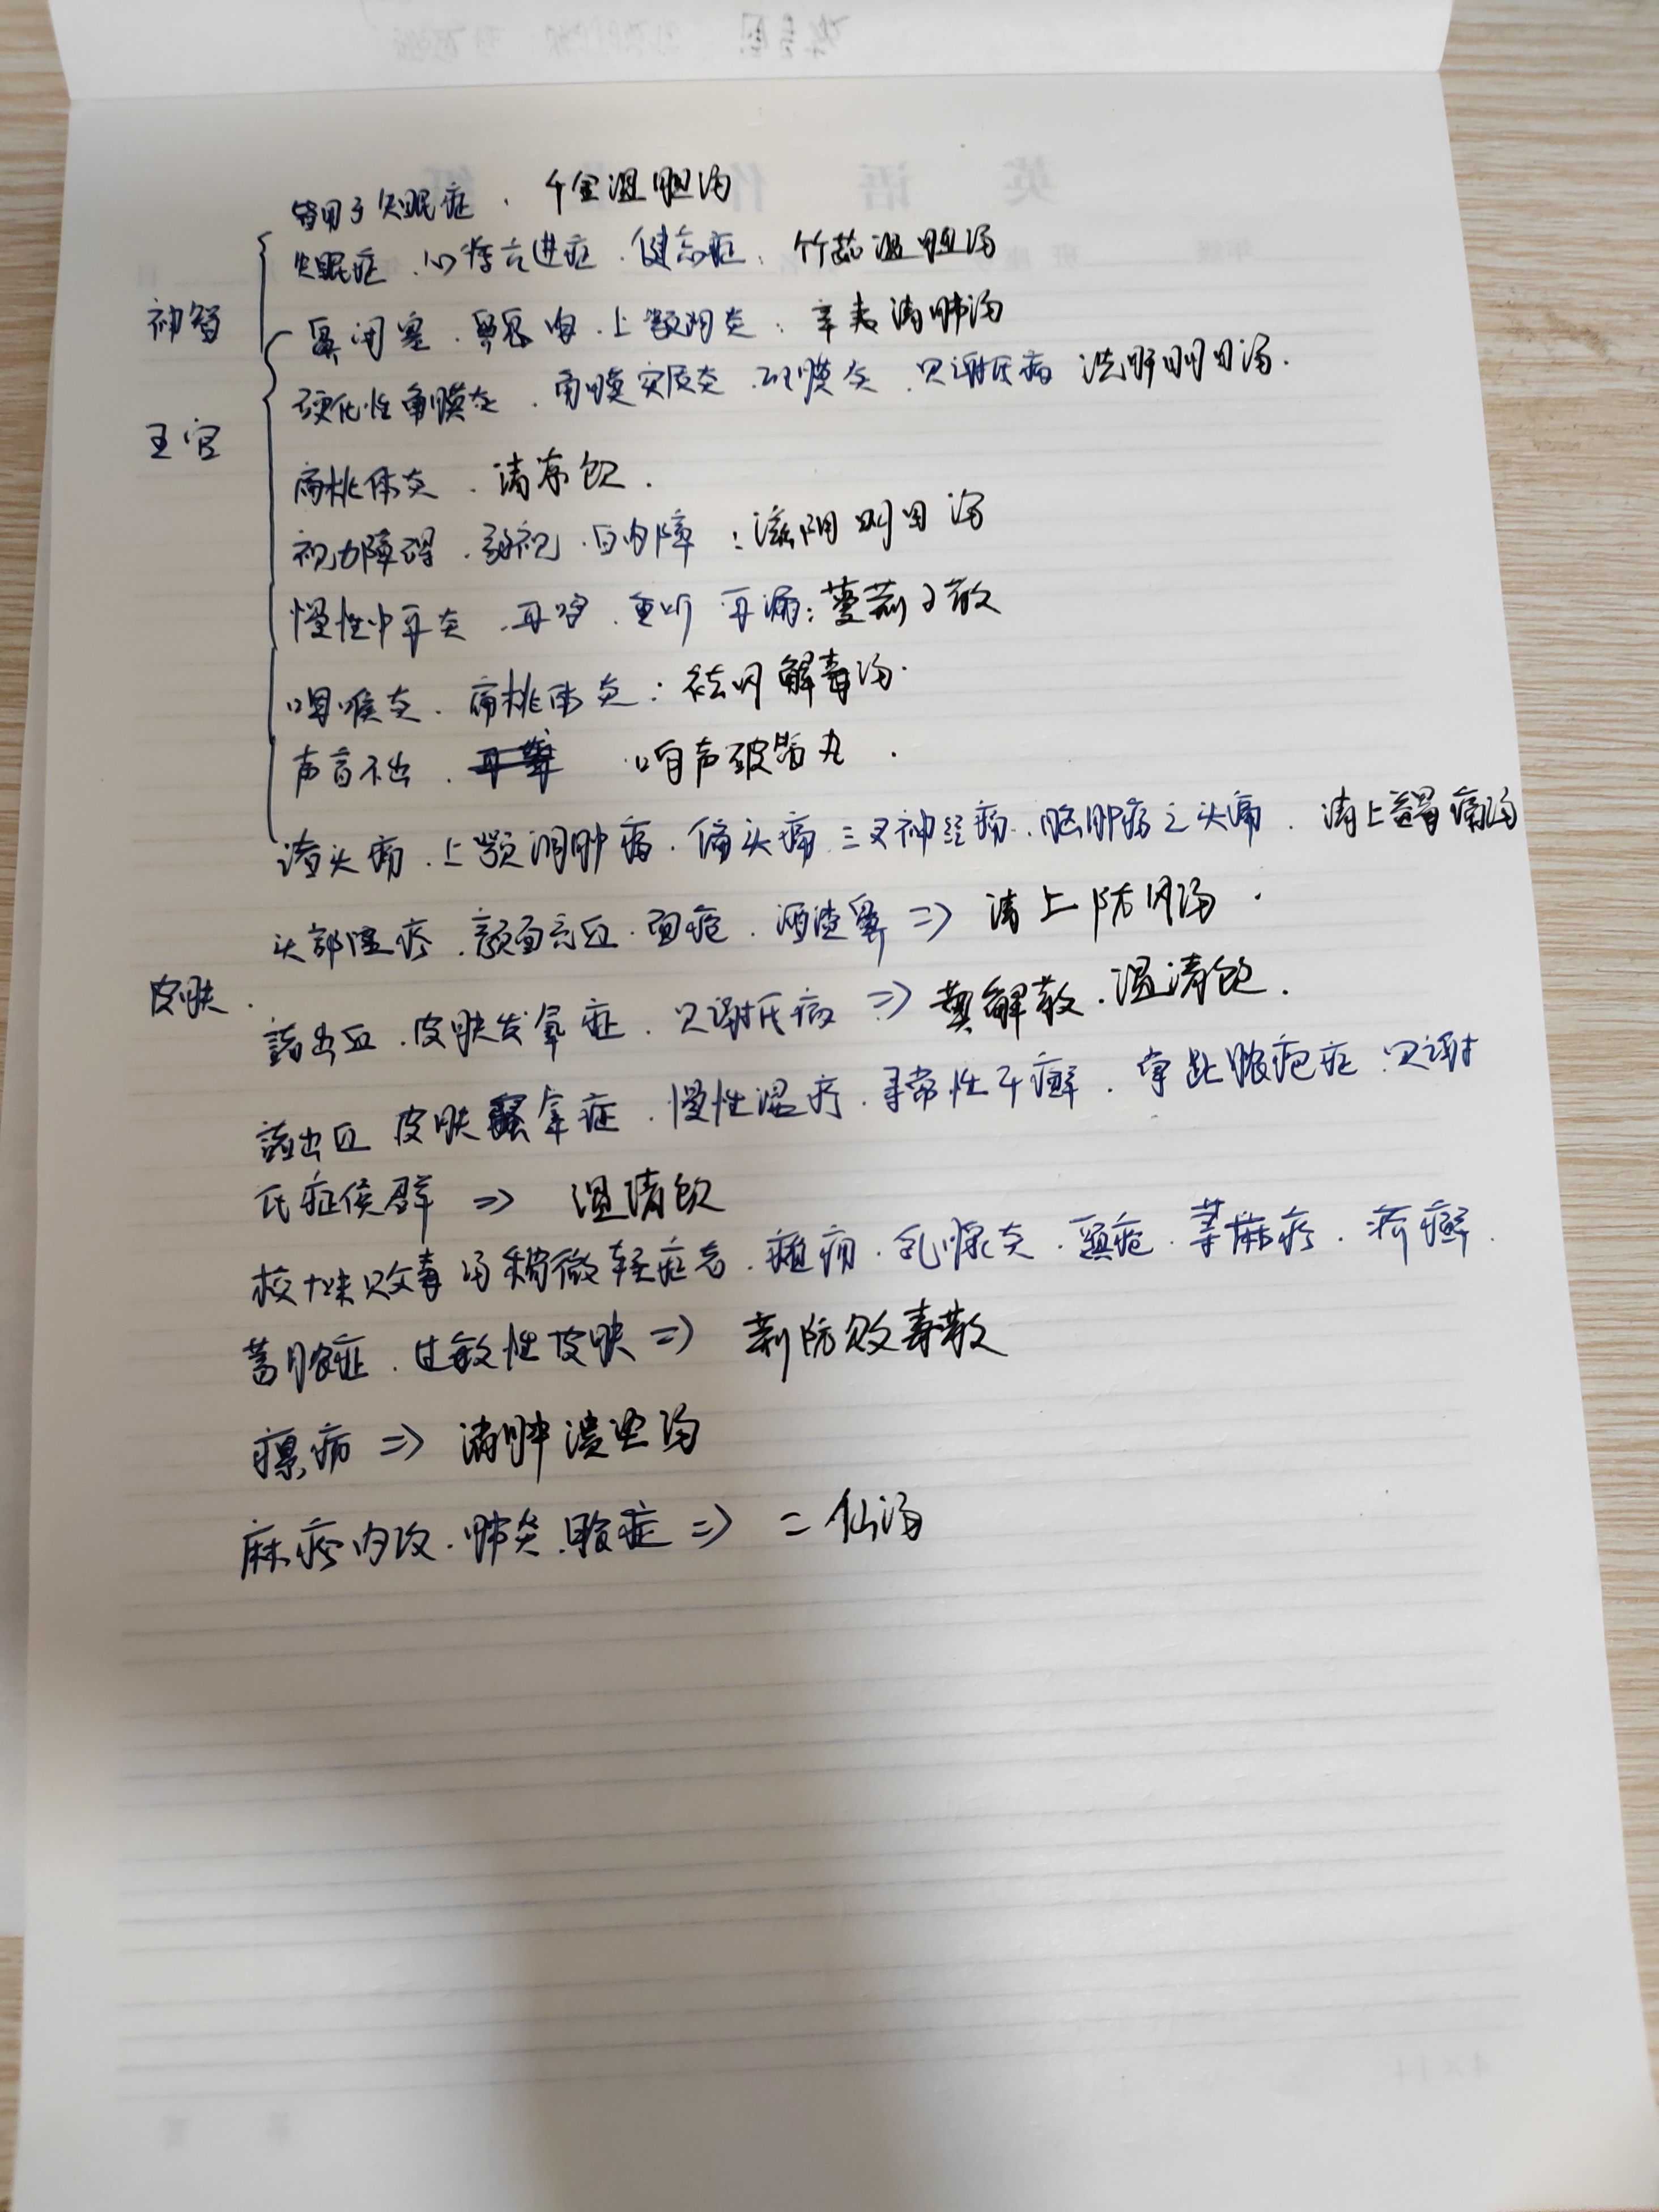 皆用于失眠症、千金温胆汤
失眠症、心悸亢进症、健忘症、竹茹温胆汤
神智
鼻闭塞、鼻息肉、上颚洞炎：辛夷清肺汤
硬化性角膜炎、角膜实质炎、巩膜炎、贝谢氏病 洗肝明目汤.
五官
扁桃体炎、清凉饮.
视力障碍、弱视、白内障：滋阴明目汤
慢性中耳炎、耳鸣、重听 耳漏：蔓荆子散
咽喉炎、扁桃体炎：祛风解毒汤.
声音不出、响声破笛丸.
头痛、上颚洞肿疡、偏头痛 三叉神经痛、脑肿疡之头痛、清上蠲痛汤
头部湿疹、颜面充血、面疱、酒渣鼻 => 清上防风汤.
皮肤.
诸出血、皮肤、贝谢氏病 => 黄解散、温清饮.
诸出血 皮肤骚拿症、慢性湿疹、寻常性干癣、掌趾脓疱症、贝谢
氏症候群 => 温清饮
校十味败毒汤稍微轻症者、疽疖、乳腺炎、面疱、荨麻疹、疥癣.
蓄脓症、过敏性皮肤 => 荆防败毒散
瘰疬 => 消肿溃坚汤
麻疹内攻、肺炎、症 => 二仙汤
英语作 纸